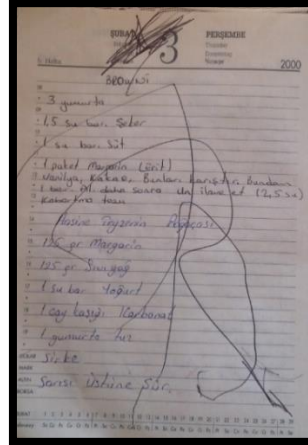 ŞUBAT 3 PERŞEMBE
5. Hafta 2000
BROWNİ
3 yumurta
1,5 su bar. Şeker
1 su bar. Süt
1 paket Margarin (Erit)
Vanilya, Kakao, Bunları karıştır Bundan
1 bar. Al. daha sonra Un ilave et (2,5 su)
Kabartma tozu
Hasine Teyzenin Poğaçası
125 gr Margarin
125 gr Sıvıyağ
1 su bar Yoğurt
1 çay kaşığı Karbonat
1 yumurta
Sirke
Sarısı üstüne Sür.